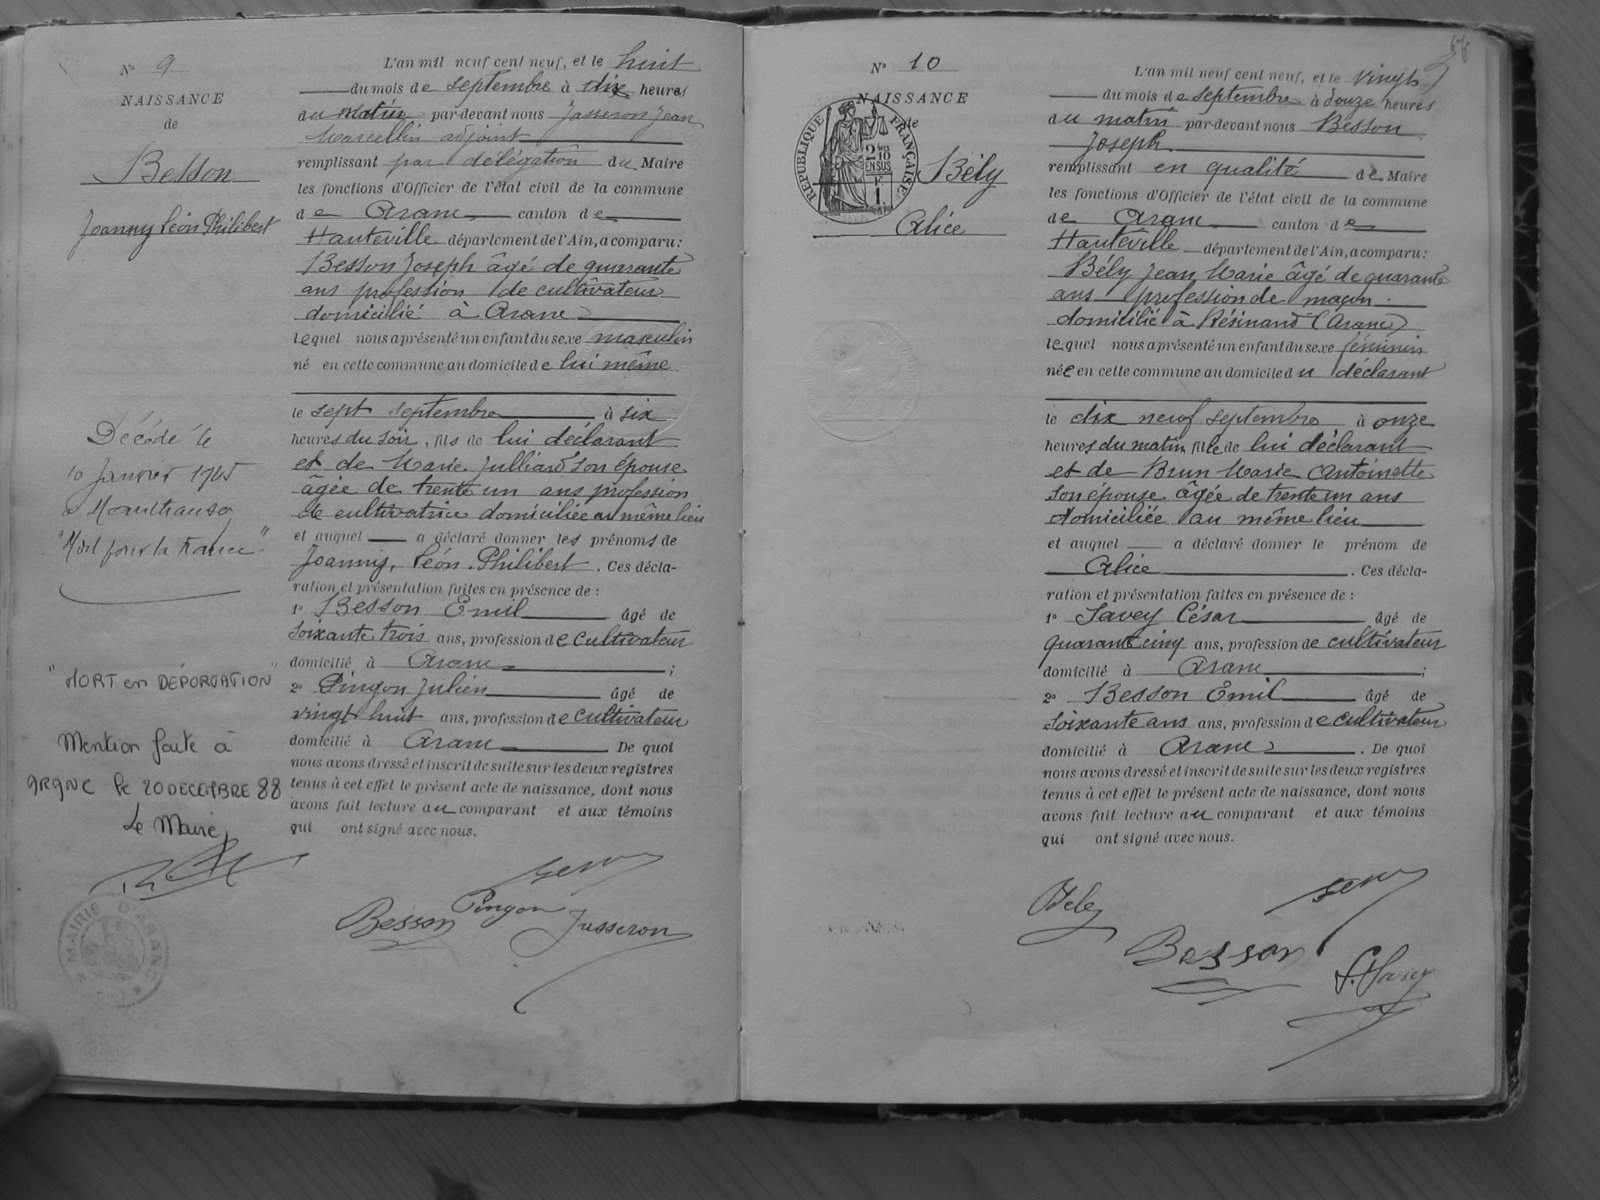 N° 9
NAISSANCE
de
Besson
Joanny Léon Philibert
Décédé le
10 Janvier 1945
à Mauthausen
"Mort pour la France"
"MORT en DÉPORTATION"
Mention faite à
ARANC le 20 DECEMBRE 88
Le Maire,
MAIRIE D'ARANC
L'an mil neuf cent neuf, et le huit
du mois de septembre à dix heures
du matin par-devant nous Jusseron Jean
Marcellin adjoint
remplissant par délégation du Maire
les fonctions d'Officier de l'état civil de la commune
de Aranc canton de
Hauteville département de l'Ain, a comparu:
Besson Joseph âgé de quarante
ans profession de cultivateur
domicilié à Aranc
lequel nous a présenté un enfant du sexe masculin
né en cette commune au domicile de lui même
le sept septembre à six
heures du soir, fils de lui déclarant
et de Marie Julliard son épouse
âgée de trente un ans profession
de cultivatrice domiciliée au même lieu
et auquel a déclaré donner les prénoms de
Joanny, Léon, Philibert. Ces décla-
ration et présentation faites en présence de :
1° Besson Emil âgé de
soixante trois ans, profession de cultivateur
domicilié à Aranc ;
2° Pingon Julien âgé de
vingt huit ans, profession de cultivateur
domicilié à Aranc . De quoi
nous avons dressé et inscrit de suite sur les deux registres
tenus à cet effet le présent acte de naissance, dont nous
avons fait lecture au comparant et aux témoins
qui ont signé avec nous.
Besson Pingon Jusseron
N° 10
NAISSANCE
de
RÉPUBLIQUE FRANÇAISE
2/10 EN SUS
Bély
Alice
L'an mil neuf cent neuf, et le vingt
du mois de septembre à douze heures
du matin par-devant nous Besson
Joseph
remplissant en qualité de Maire
les fonctions d'Officier de l'état civil de la commune
de Aranc canton de
Hauteville département de l'Ain, a comparu:
Bély Jean Marie âgé de quarante
ans profession de maçon
domicilié à Résinand (Aranc)
lequel nous a présenté un enfant du sexe féminin
née en cette commune au domicile du déclarant
le dix neuf septembre à onze
heures du matin fille de lui déclarant
et de Brun Marie Antoinette
son épouse âgée de trente un ans
domiciliée au même lieu
et auquel a déclaré donner le prénom de
Alice . Ces décla-
ration et présentation faites en présence de :
1° Savey César âgé de
quarante cinq ans, profession de cultivateur
domicilié à Aranc ;
2° Besson Emil âgé de
soixante ans ans, profession de cultivateur
domicilié à Aranc . De quoi
nous avons dressé et inscrit de suite sur les deux registres
tenus à cet effet le présent acte de naissance, dont nous
avons fait lecture au comparant et aux témoins
qui ont signé avec nous.
Bely
Besson